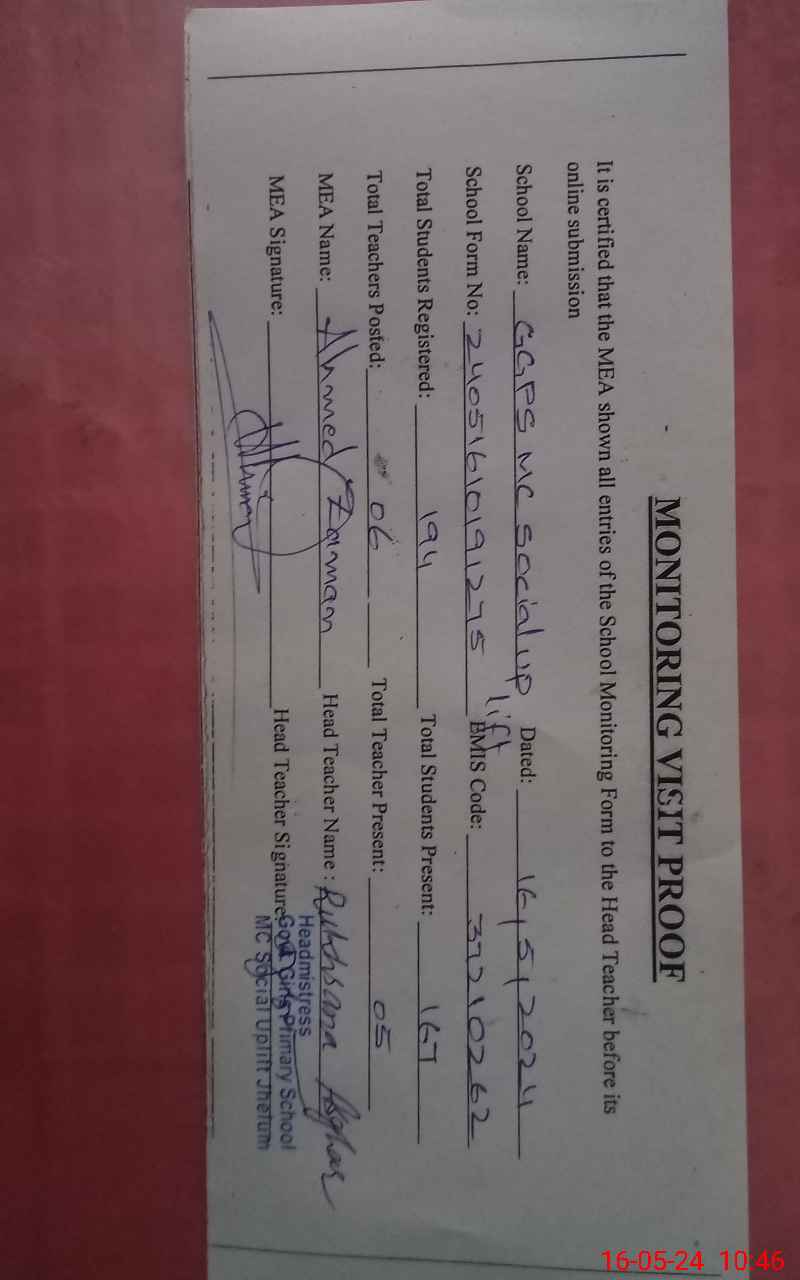 MONITORING VISIT PROOF
It is certified that the MEA shown all entries of the School Monitoring Form to the Head Teacher before its
online submission
School Name: GGPS MC Social up lift Dated: 16/5/2024
School Form No: 24051610191275 EMIS Code: 37210262
Total Students Registered: 194 Total Students Present: 167
Total Teachers Posted: 06 Total Teacher Present: 05
MEA Name: Ahmed Zaman Head Teacher Name : Rukhsana Asghar
MEA Signature: Head Teacher Signature:
Headmistress
Govt Girls Primary School
MC Social Uplift Jhelum
16-05-24 10:46